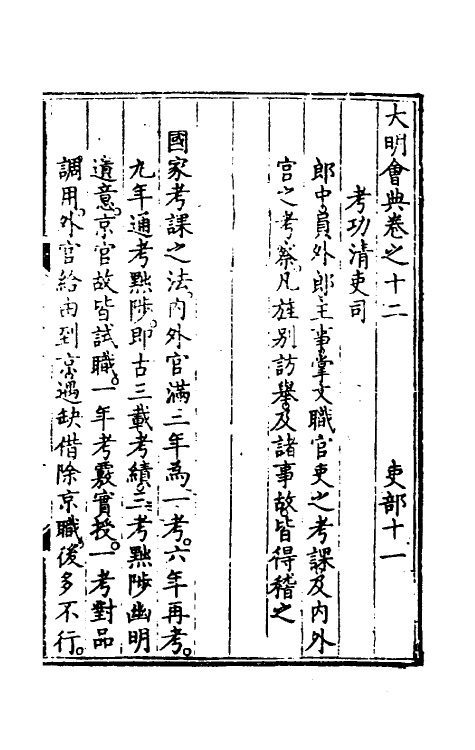 大明會典卷之十二　吏部十一
考功清吏司
郎中。員外郎。主事。掌文職官吏之考課。及內外
官之考察。凡旌別訪舉。及諸事故。皆得稽之
國家考課之法。內外官滿三年爲一考。六年再考。
九年通考黜陟。即古三載考績。三考黜陟幽明
遺意。京官故皆試職。一年考覈實授。一考對品
調用。外官給由到京。遇缺借除京職。後多不行。